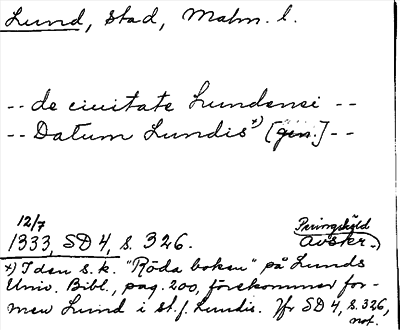 Lund, stad, Malm. l.
-- de ciuitate Lundensi --
-- Datum Lundis *) [gen.] --
12/7
1333, SD 4, s. 326.
Peringskiöld
avskr.
*) I den s.k. "Röda boken" på Lunds
Univ. Bibl., pag. 200, förekommer for-
men Lund i st. f. Lundis. Jfr SD 4, s. 326,
not.